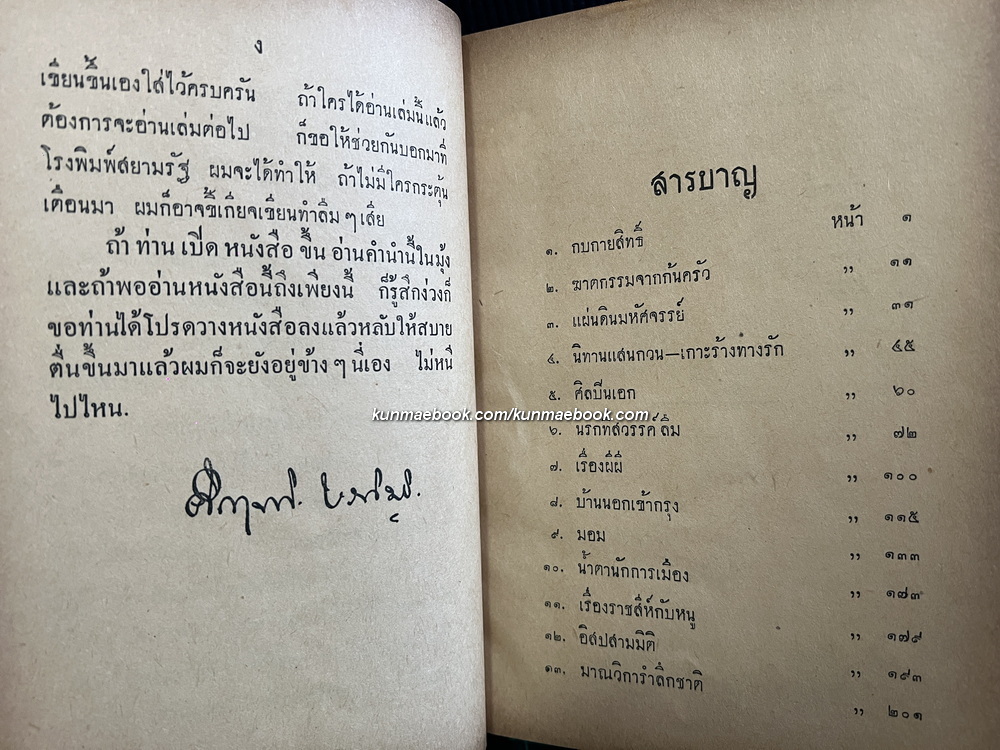 ง
เขียนขึ้นเองใส่ไว้ครบครัน ถ้าใครได้อ่านเล่มนี้แล้ว
ต้องการจะอ่านเล่มต่อไป ก็ขอให้ช่วยกันบอกมาที่
โรงพิมพ์สยามรัฐ ผมจะได้ทำให้ ถ้าไม่มีใครกระตุ้น
เตือนมา ผมก็อาจขี้เกียจเขียนทำลืม ๆ เสีย
ถ้า ท่าน เปิด หนังสือ ขึ้น อ่านคำนำนี้ในมุ้ง
และถ้าพออ่านหนังสือนี้ถึงเพียงนี้ ก็รู้สึกง่วงก็
ขอท่านได้โปรดวางหนังสือลงแล้วหลับให้สบาย
ตื่นขึ้นมาแล้วผมก็จะยังอยู่ข้าง ๆ นี่เอง ไม่หนี
ไปไหน.
สารบาญ
หน้า ๑
๑. กบกายสิทธิ์
๒. ฆาตกรรมจากก้นครัว ,, ๑๑
๓. แผ่นดินมหัศจรรย์ ,, ๓๑
๔. นิทานแสนกวน—เกาะร้างทางรัก ,, ๔๕
๕. ศิลปินเอก ,, ๖๐
๖. นรกทีสวรรค์ ลืม ,, ๗๒
๗. เรื่องผีผี ,, ๑๐๐
๘. บ้านนอกเข้ากรุง ,, ๑๑๕
๙. มอม ,, ๑๓๓
๑๐. น้ำตานักการเมือง ,, ๑๗๓
๑๑. เรื่องราชสีห์กับหนู ,, ๑๗๙
๑๒. อิสปสามมิติ ,, ๑๙๓
๑๓. มาณวิการำลึกชาติ ,, ๒๐๑
kunmaebook.com/kunmaebook.com